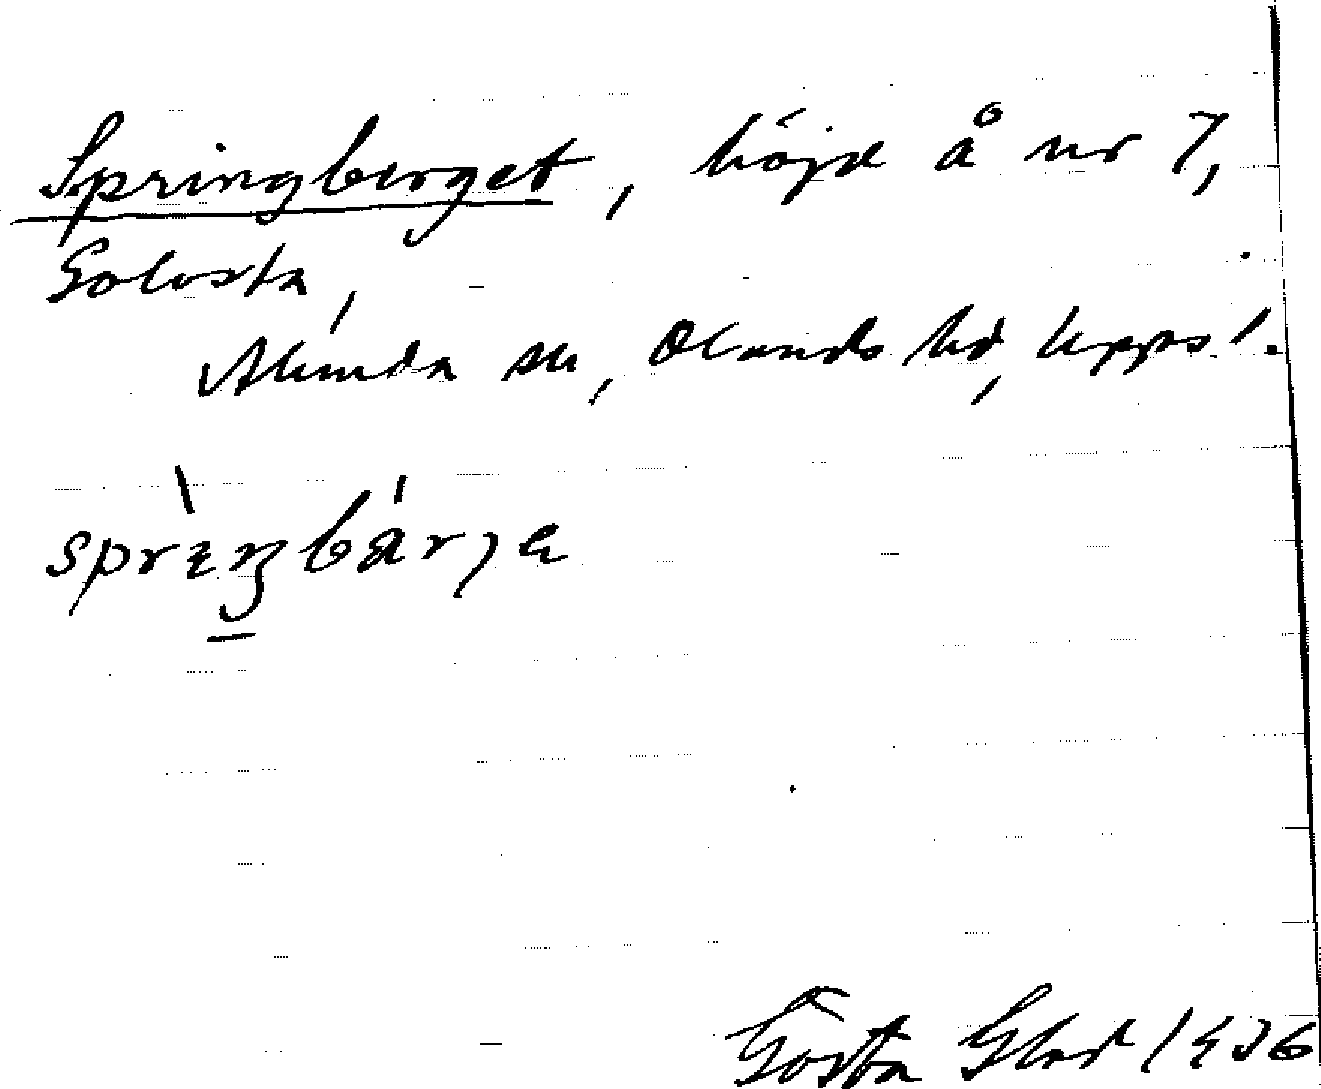 Springberget, höjd å nr 7,
Golvsta,
Alunda sn, Olands hd, Uppsl.
Gösta Glad 1936